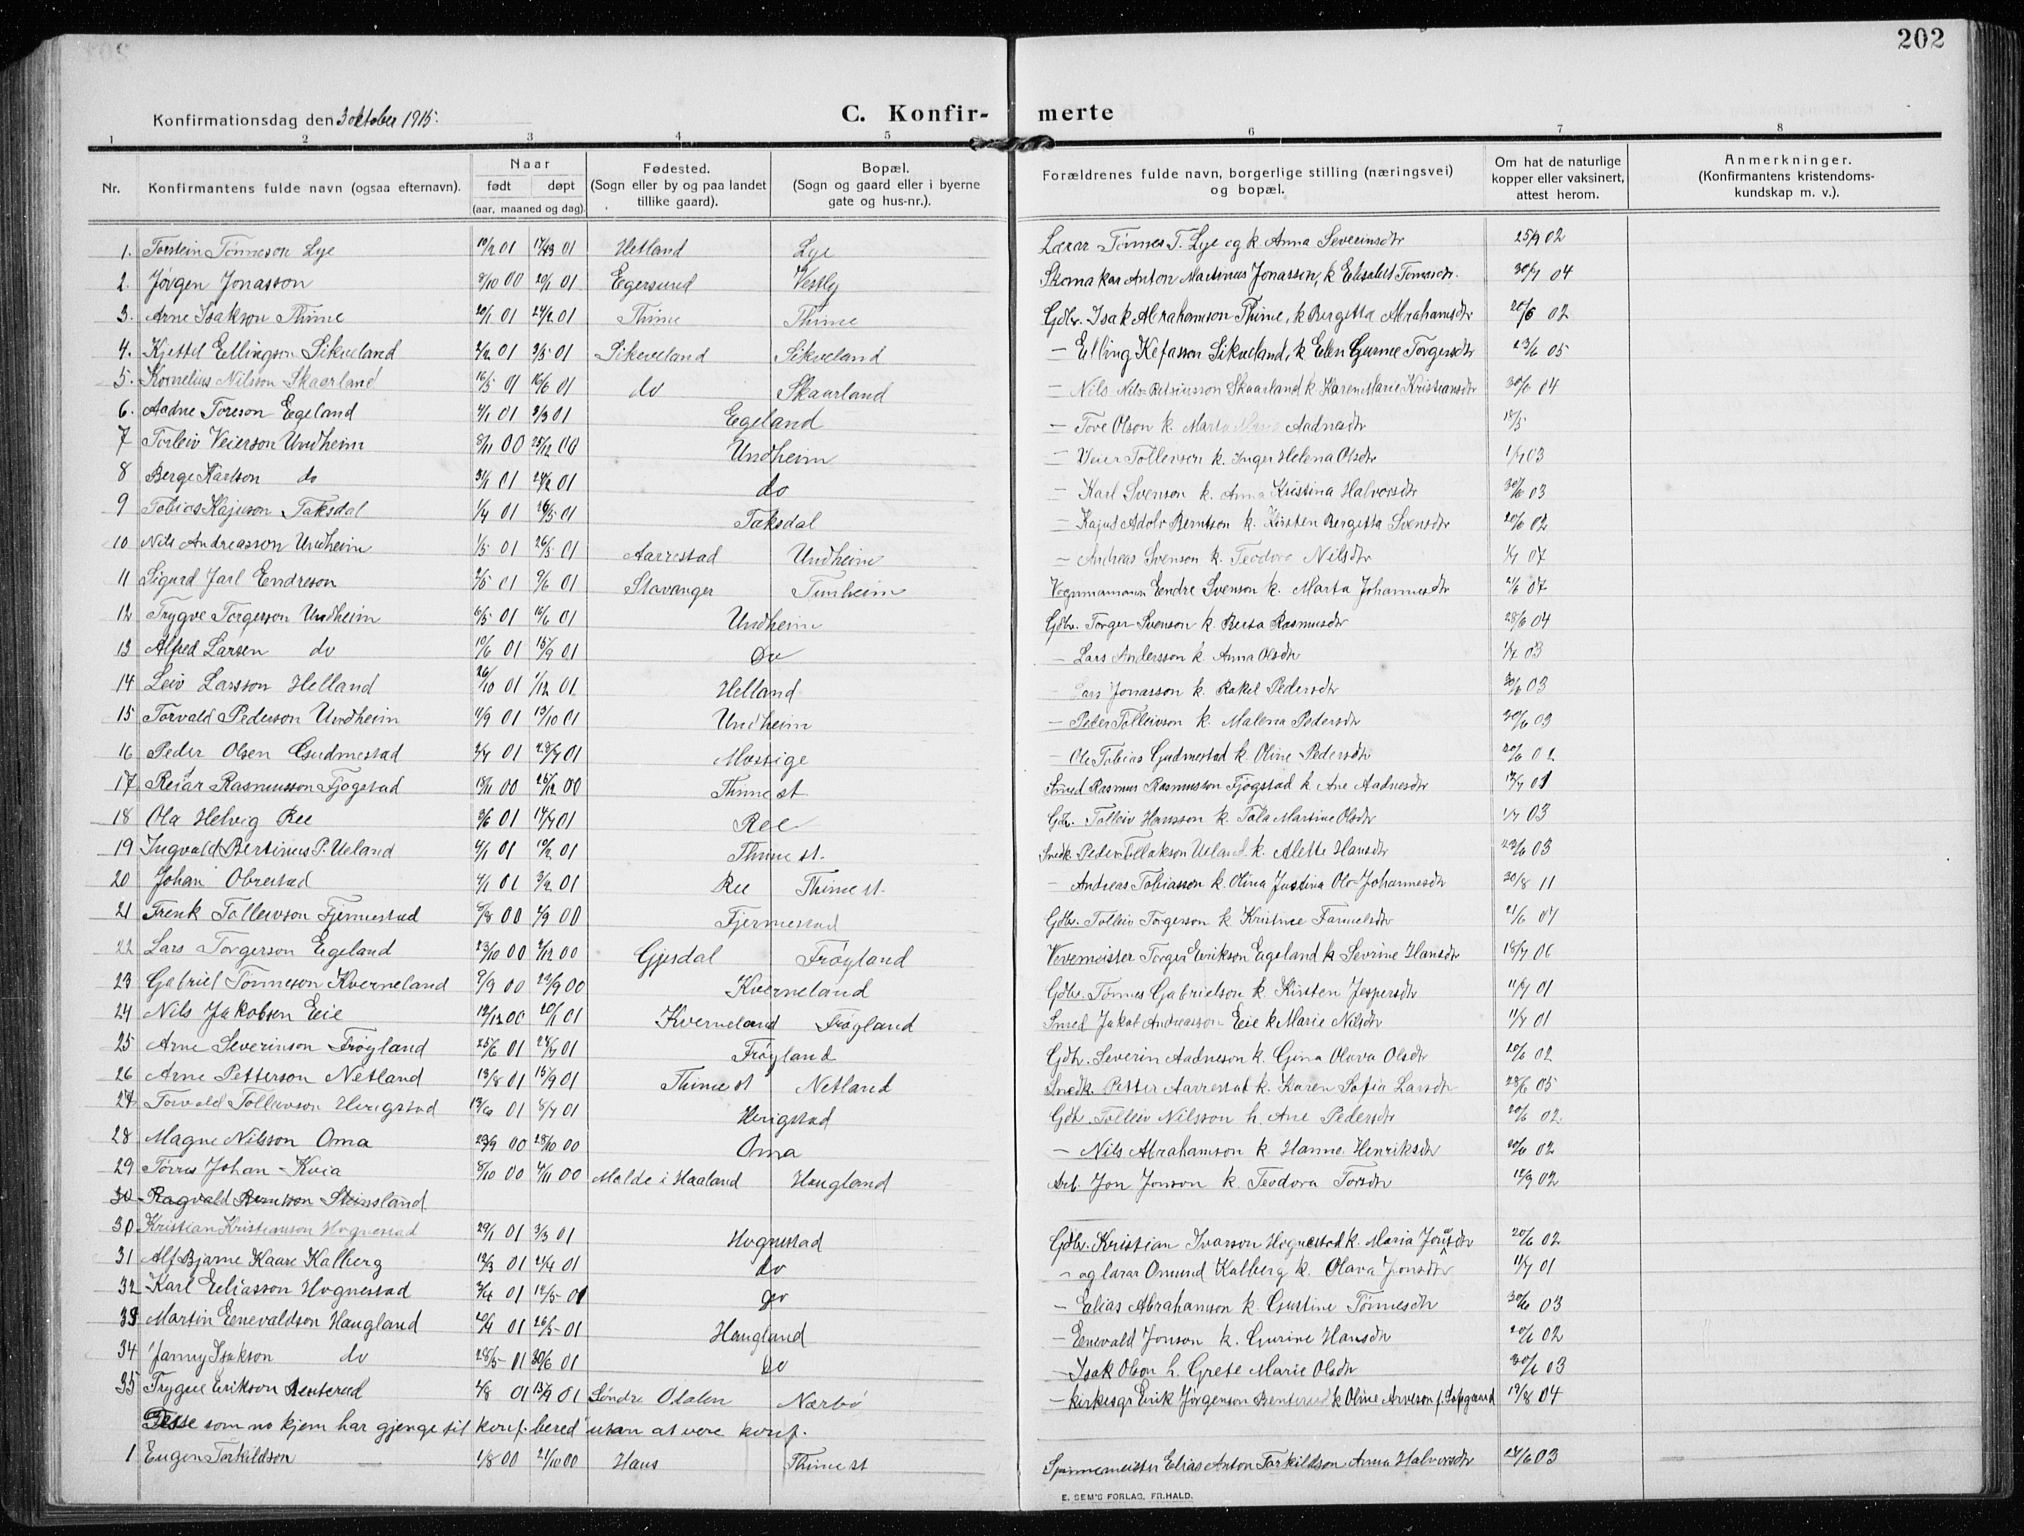 202
Konfirmationsdag den 3 oktober 1915.
C. Konfir- merte
1 2 3 4 5 6 7 8
Nr. Konfirmantens fulde navn (ogsaa efternavn). Naar født døpt (aar, maaned og dag). Fødested. (Sogn eller by og paa landet tillike gaard). Bopæl. (Sogn og gaard eller i byerne gate og hus-nr.). Forældrenes fulde navn, borgerlige stilling (næringsvei) og bopæl. Om hat de naturlige kopper eller vaksinert, attest herom. Anmerkninger. (Konfirmantens kristendoms-kundskap m. v.).
1. Torstein Tønneson Lye 01 01 Hetland Lye Lærar Tønnes T. Lye og k. Anna Severinsdtr 25/9 02
2. Jørgen Jonasson 8/10 00 20/1 01 Egersund Vestly Skomakar Anton Martinus Jonasson, k Elisabet Tomasdtr. 04
3. Arne Isakson Thime 20/1 01 24/2 01 Thime Thime Gdbr. Isak Abrahamson Thime, k Bergitta Abrahamsdtr 20/6 02
4. Kjettel Ellingson Sikveland 2/2 01 3/5 01 Sikveland Sikveland — Elling Kefasson Sikveland, k. Elen Gurine Torgersdtr 23/6 05
5. Kornelius Nilson Skaarland 16/5 01 16/6 01 do Skaarland — Nils Skaarland k Karen Marie Kristiansdtr 30/6 04
6. Aadne Toreson Egeland 01 3/3 01 Egeland — Tore Olson k. Marta Aadnesdtr 18/5
7 Torleiv Veierson Undheim 8/11 00 25/12 00 Undheim — Veier Tolleivson k. Inger Helena Olsdtr 1/7 03
8 Berge Karlson do 01 24/2 01 do — Karl Svenson k. Anna Kristina Halvorsdtr 30/6 03
9 Tobias Kajuson Taksdal 1/4 01 01 Taksdal — Kajus Adolv Berntson k. Kirsten Bergitta Svensdtr 20/6 02
10 Nils Andreasson Undheim 1/5 01 26/5 01 Aarrestad Undheim — Andreas Svenson k. Teodora Nilsdtr 1/7 07
11 Sigurd Jarl Endreson 2/5 01 9/6 01 Stavanger Tunheim Endre Svenson k. Marta Johannesdtr 07
12 Trygve Torgerson Undheim 6/5 01 16/6 01 Undheim Gdbr. Torger Svenson k. Berta Rasmusdtr 28/6 04
13 Alfred Larsen do 10/6 01 15/9 01 Do — Lars Andersson k. Anna Olsdtr 1/7 03
14 Leiv Larsson Helland 26/10 01 1/12 01 Helland — Lars Jonasson k. Rakel Pedersdtr 30/6 03
15 Torvald Pederson Undheim 01 13/10 01 Undheim — Peder Tolleivson k. Malena Pedersdtr 30/6 03
16 Peder Olsen Gudmestad 2/7 01 28/7 01 Mossige — Ole Tobias Gudmestad k. Oline Pedersdtr 20/6 02
17 Reiar Rasmusson Fjøgstad 18/11 00 26/12 00 Thime st. Smed Rasmus Rasmusson Fjøgstad k Ane Aadnesdtr 01
18 Ola Helvig Ree 01 14/7 01 Ree Gdbr. Tolleiv Hansson k. Tala Martine Olsdtr 1/7 03
19 Ingvald Bertinus P. Ueland 01 10/2 01 Thime st. Snedk. Peder Ueland k. Alette Hansdtr 03
20 Johan Obrestad 01 3/2 01 Ree Thime st. — Andreas Tobiasson k. Olina Justina Ola-Johannesdtr 30/8 11
21 Frenk Tolleivson Fjermestad 5/8 00 4/9 00 Fjermestad Gdbr. Tolleiv Torgerson k Kristine Samuelsdtr 21/6 07
22 Lars Torgerson Egeland 23/10 00 00 Gjesdal Frøyland Vevemeister Torger Eirikson Egeland k Sevrine Hansdtr 18/7 06
23 Gabriel Tønneson Kverneland 9/9 00 00 Kverneland Gdbr. Tønnes Gabrielson k. Kirsten Jespersdtr 11/7 01
24 Nils Jakobsen Eie 12/12 00 20/1 01 Kverneland Frøyland Smed Jakob Andreasson Eeie k Marie Nilsdtr 11/7 01
25 Arne Severinson Frøyland 25/6 01 28/7 01 Frøyland Gdbr. Severin Aadneson k. Gina Olava Olsdtr 20/6 02
26 Arne Petterson Netland 13/8 01 15/9 01 Thime st Netland Snedk. Petter Aarrestad k. Karen Sofia Larsdtr 28/6 05
27 Torvald Tolleivson Herigstad 01 8/7 01 Herigstad Gdbr. Tolleiv Nilsson k. Ane Pedersdtr 20/6 02
28 Magne Nilsson Oma 23/9 00 28/10 00 Oma — Nils Abrahamson k. Hanne Henriksdtr 20/6 02
29 Tørres Johan Kvia 8/10 00 4/11 00 Molde i Haaland Haugland Arb. Jon Jonson k. Teodora Torsdtr 12/9 02
30 Ragvald Berntson Steinsland
30 Kristian Kristianson Hognestad 29/1 01 3/3 01 Hognestad Gdbr. Kristian Ivarson Hognestad k. Maria 20/6 02
31 Alf Bjarne Kaare Kalberg 01 01 do — og lærar Omund Kalberg k. Olava Jonsdtr 11/7 01
32 Karl Eeliasson Hognestad 01 12/5 01 do — Eelias Abrahamson k. Gustine Tønnesdtr 30/6 03
33 Martin Eenevaldson Haugland 01 26/5 01 Haugland — Eenevald Jonson k. Gurine Hansdtr 20/6 02
34 Janny Isakson do 28/5 01 30/6 01 do — Isak Olson k. Grete Marie Olsdtr 30/6 03
35 Trygve Erikson Benterud 01 01 Søndre Odalen Nærbø — kirkesgr Erik Jørgenson Benterud k Oline 19/8 04
Desse som no kjem har gjenge til konf. bered utan at vere konf.
1 Eugen Torkildson 00 21/10 00 Haus Thime st Spinnemeister Elias Anton Torkildson Anna Halvorsdtr 03
E. SEM'S FORLAG, FR.HALD.